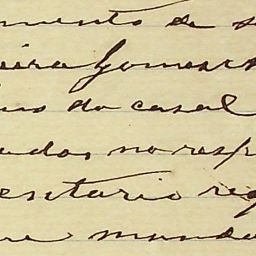 mento de s
eira Gomes
do casal
udos, no resp
entario re
ue manda